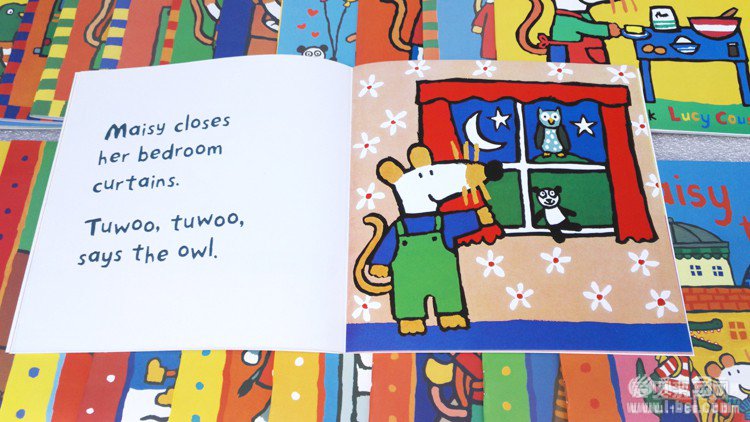 Maisy closes
her bedroom
curtains.
Tuwoo, tuwoo,
says the owl.
Lucy Cou
aisy